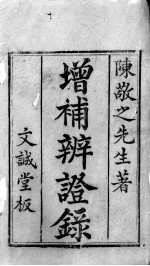 陳敬之先生著
增補辨證錄
文誠堂板